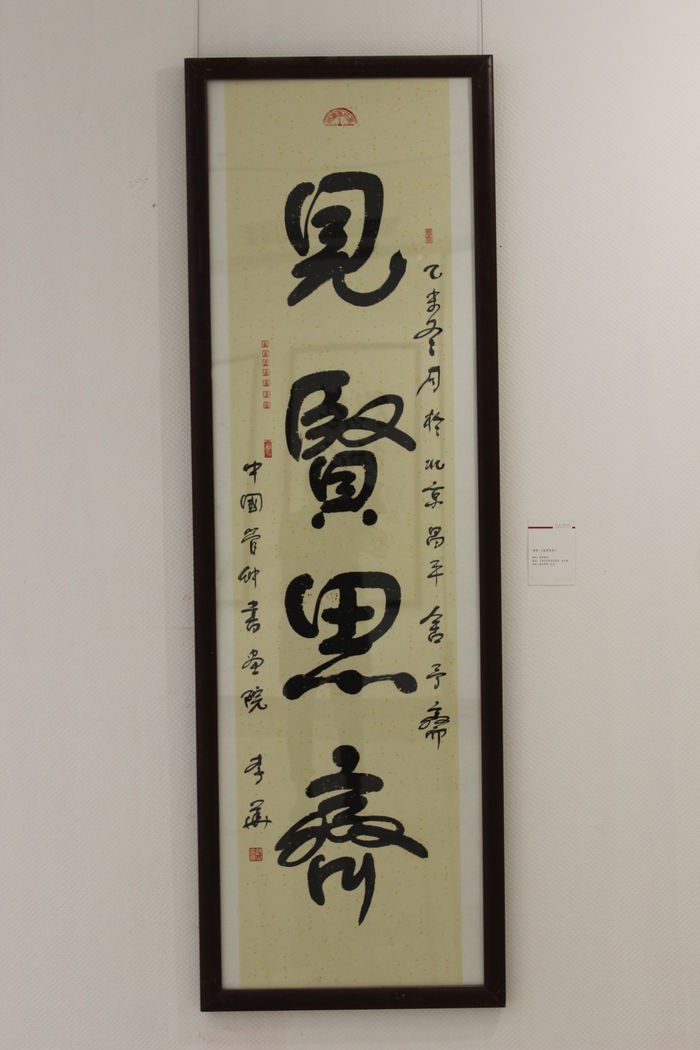 見賢思齊
乙未冬月於北京昌平舍予齋
中國管仲書畫院 李華